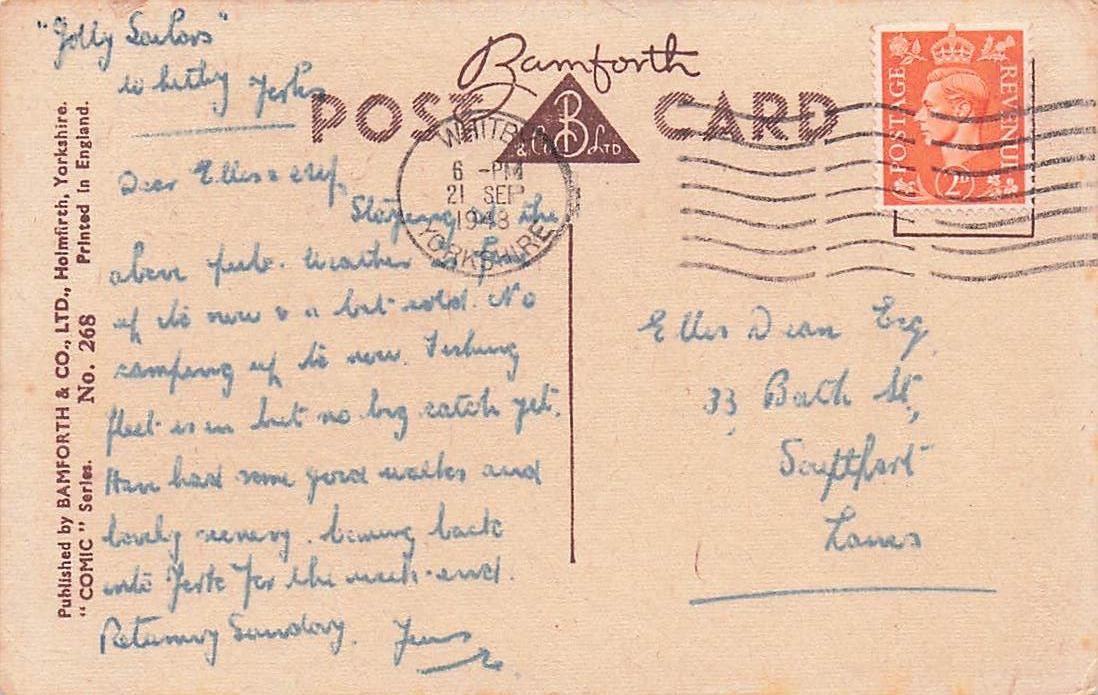 "Jolly Sailors"
Whitby Yorks
Dear Ellis
Staying at the
above pub. Weather
up to now & a bit cold. No
camping up to now. Fishing
fleet is in but no big catch yet.
Have had some good walks and
lovely scenery. Coming back
into York for the week-end.
Returning Sunday.
Bamforth
POST CARD
B
& Co LTD
WHITBY
6 - PM
21 SEP
1948
YORKSHIRE
POSTAGE
REVENUE
2D
Ellis Dean Esq,
33 Bath St,
Southport
Lancs
Published by BAMFORTH & CO., LTD., Holmfirth, Yorkshire.
"COMIC" Series. No. 268 Printed in England.